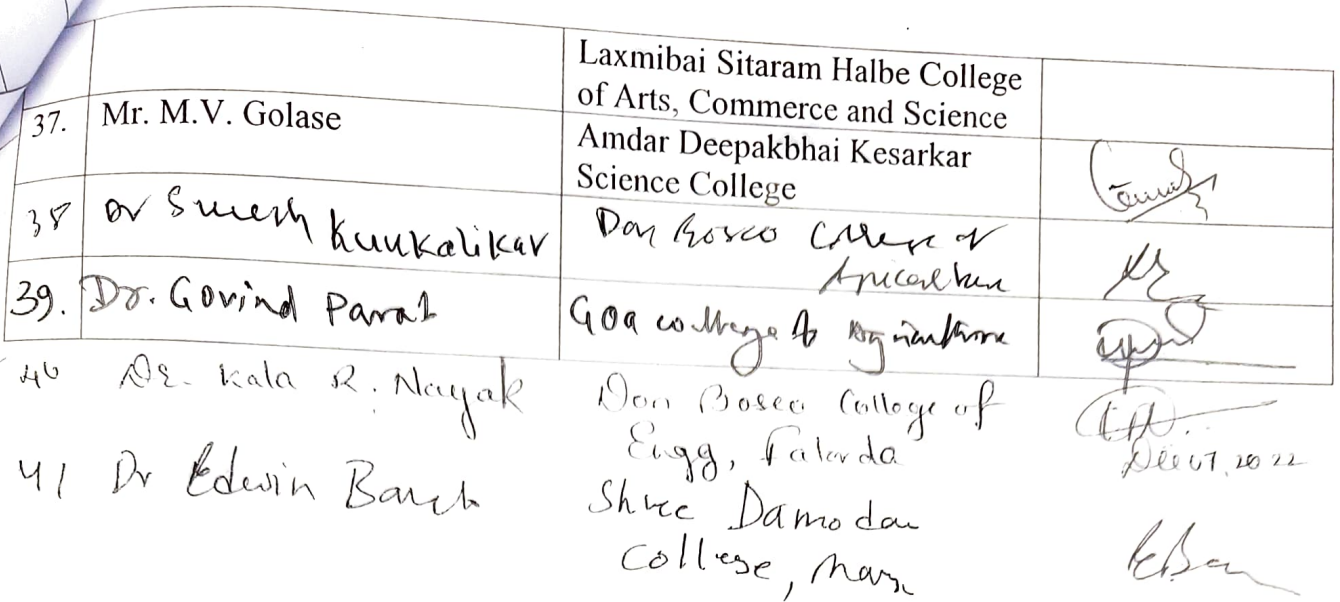 Laxmibai Sitaram Halbe College
of Arts, Commerce and Science
37. Mr. M.V. Golase Amdar Deepakbhai Kesarkar
Science College
38 Dr Suresh Kunkalikar Don Bosco College of
Agriculture
39. Dr. Govind Parab Goa college of Agriculture
40 Dr. Kala R. Nayak Don Bosco College of
Engg, Fatorda
Dec 07, 2022
41 Dr Edwin Barreto Shree Damodar
College,